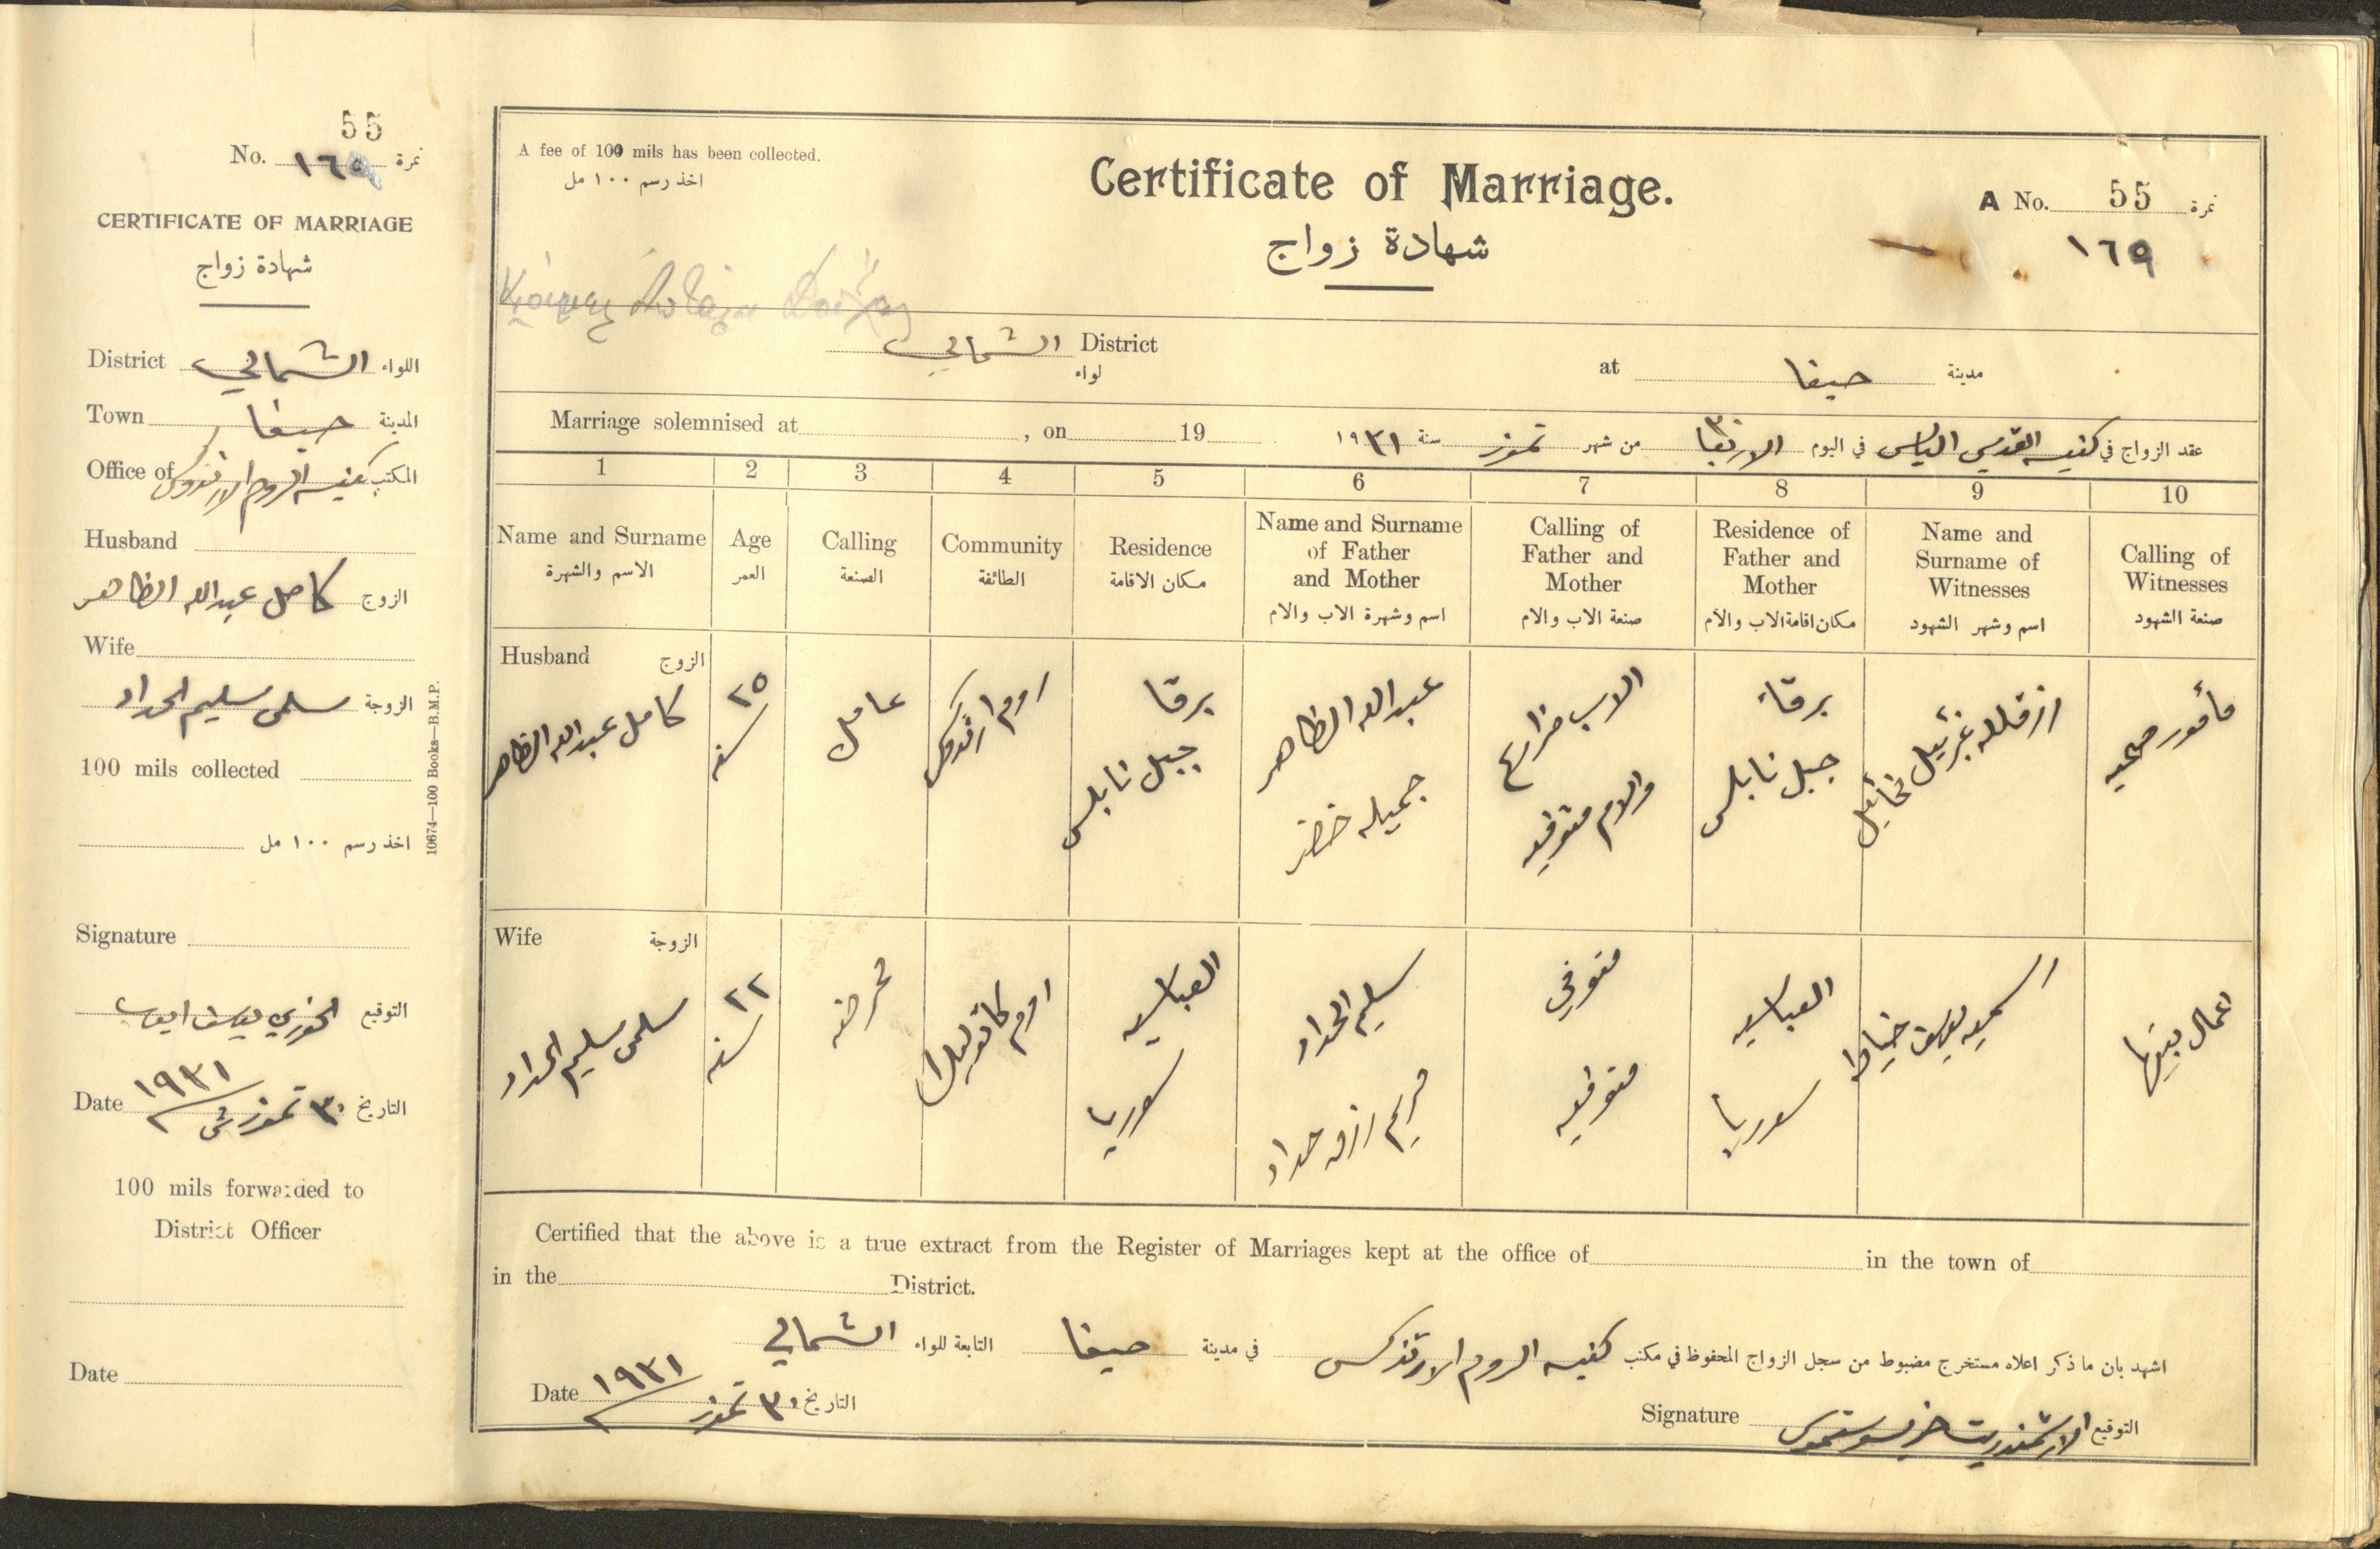 55
No. ١٦٥ نمرة
CERTIFICATE OF MARRIAGE
شهادة زواج
District الشمالي اللواء
Town حيفا المدينة
Office of كنيسه الروم الارثدوكس المكتب
Husband
كامل عبدالله الظاهر الزوج
Wife
سلمى سليم الحداد الزوجة
100 mils collected
اخذ رسم ١٠٠ مل
Signature
الخوري يوسف ايوب التوقيع
Date ٣٠ تموز ١٩٣١ التاريخ
100 mils forwarded to
District Officer
Date
10674—100 Books—B.M.P.
A fee of 100 mils has been collected.
اخذ رسم ١٠٠ مل
Certificate of Marriage.
شهادة زواج
A No. 55 نمرة
١٦٥
الشمالي District
لواء
at حيفا مدينة
Marriage solemnised at , on 19
عقد الزواج في كنيسه القديس الياس في اليوم ٣٠ الاربعا من شهر تموز سنة ١٩٣١
1 2 3 4 5 6 7 8 9 10
Name and Surname
الاسم والشهرة
Age
العمر
Calling
الصنعة
Community
الطائفة
Residence
مكان الاقامة
Name and Surname
of Father
and Mother
اسم وشهرة الاب والام
Calling of
Father and
Mother
صنعة الاب والام
Residence of
Father and
Mother
مكان اقامة الاب والام
Name and
Surname of
Witnesses
اسم وشهر الشهود
Calling of
Witnesses
صنعة الشهود
Husband الزوج
كامل عبدالله الظاهر
٢٥
سنه
عامل
روم ارثدوكس
برقا
جبل نابلس
عبدالله الظاهر
جميله خضر
الاب مزارع
والام متوفيه
برقا
جبل نابلس
رزقالله غبرئيل
مأمور صحيه
Wife الزوجة
سلمى سليم الحداد
٢٢
سنه
ممرضه
روم كاثوليك
العباسيه
سوريا
سليم الحداد
مريم رزق حداد
متوفي
متوفيه
العباسيه
سوريا
اسميه يوسف خياط
اعمال بيتها
Certified that the above is a true extract from the Register of Marriages kept at the office of in the town of
in the District.
اشهد بان ما ذكر اعلاه مستخرج مضبوط من سجل الزواج المحفوظ في مكتب كنيسه الروم الارثدكس في مدينة حيفا التابعة للواء الشمالي
Date ٣٠ تموز ١٩٣١ التاريخ
Signature الارشمندريت خريسوستموس التوقيع